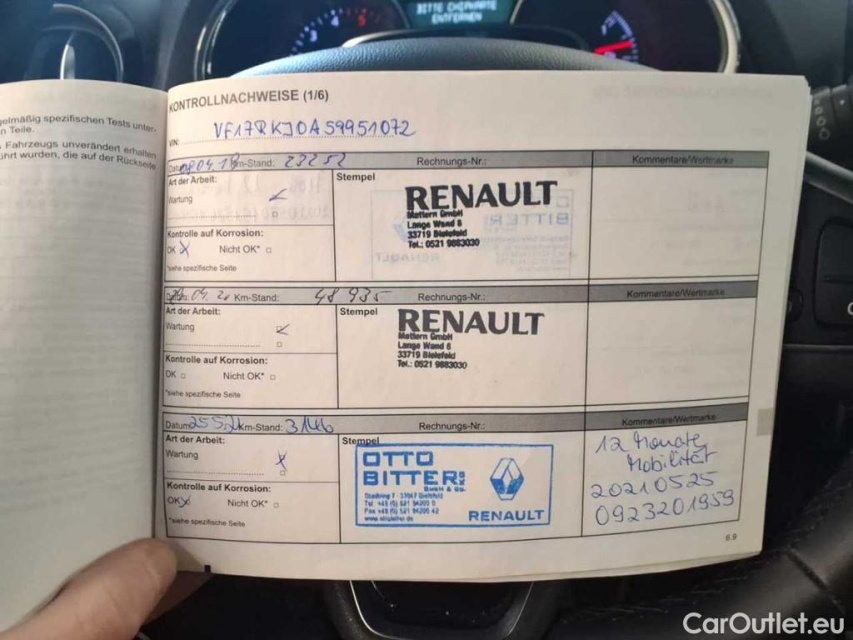 BITTE CHIPKARTE
ENTFERNEN
gelmäßig spezifischen Tests unter-
n Teile.
Fahrzeugs unverändert erhalten
ührt wurden, die auf der Rückseite
KONTROLLNACHWEISE (1/6)
VIN: VF17RKJ0A59951072
Km-Stand: 23252 Rechnungs-Nr.: Kommentare/Wertmarke
Art der Arbeit: Stempel
Wartung
RENAULT
Mattern GmbH
Lange Wand 6
33719 Bielefeld
Tel.: 0521 9883030
Kontrolle auf Korrosion:
OK X Nicht OK*
*siehe spezifische Seite
Km-Stand: 48935 Rechnungs-Nr.: Kommentare/Wertmarke
Art der Arbeit: Stempel
Wartung
RENAULT
Mattern GmbH
Lange Wand 6
33719 Bielefeld
Tel.: 0521 9883030
Kontrolle auf Korrosion:
OK Nicht OK*
*siehe spezifische Seite
Datum 25.5.21 Km-Stand: Rechnungs-Nr.: Kommentare/Wertmarke
Art der Arbeit: Stempel
Wartung X
OTTO
BITTER
GmbH & Co.
RENAULT
12 Monate
Mobilität
20210525
0923201959
Kontrolle auf Korrosion:
OK X Nicht OK*
*siehe spezifische Seite
6.9
CarOutlet.eu